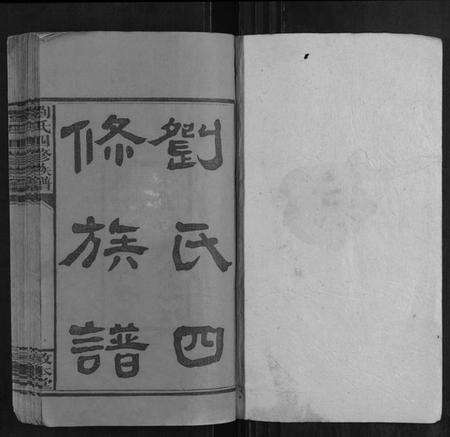 劉氏四
修族譜
劉氏四修族譜
敦本堂